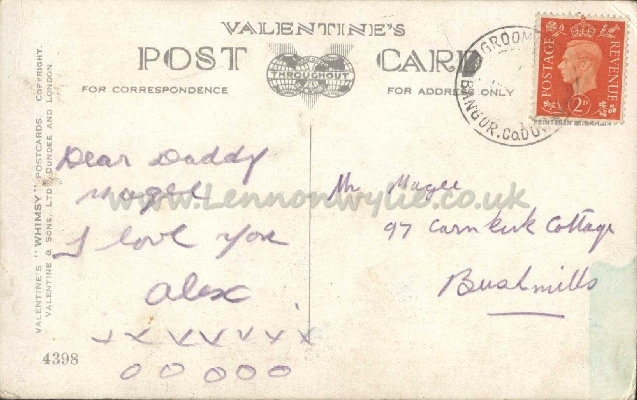 VALENTINE'S
POST CARD
THROUGHOUT
FOR CORRESPONDENCE
FOR ADDRESS ONLY
VALENTINE'S "WHIMSY" POSTCARDS. COPYRIGHT.
VALENTINE & SONS, LTD. DUNDEE AND LONDON
GROOM
BANGOR. Co. DOWN
POSTAGE
REVENUE
2D
Dear Daddy
Magee
I love you
alex
x x x x x x x
o o o o o
4398
Mr Magee
97 Carnkirk Cottage
Bushmills
www.Lennonwylie.co.uk